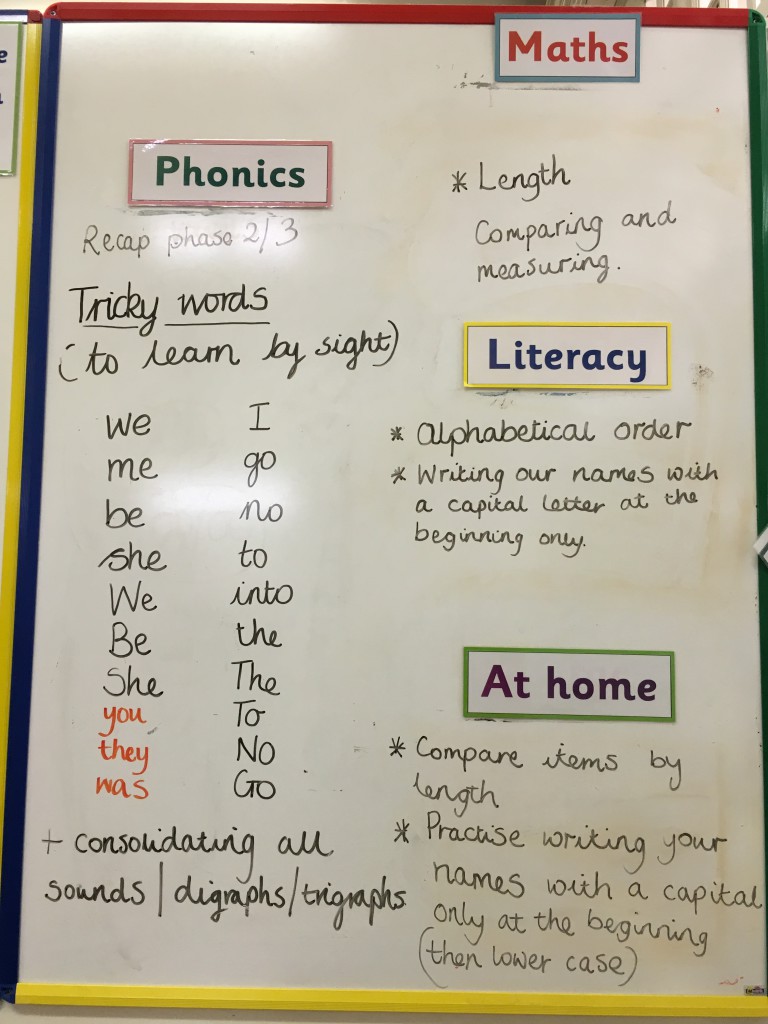 Maths
Phonics
Recap phase 2/3
Tricky words
(to learn by sight)
we I
me go
be no
she to
We into
Be the
She The
you To
they NO
was Go
+ consolidating all
sounds / digraphs / trigraphs
* Length
Comparing and
measuring.
Literacy
* Alphabetical order
* Writing our names with
a capital letter at the
beginning only.
At home
* Compare items by
length
* Practise writing your
names with a capital
only at the beginning
(then lower case)